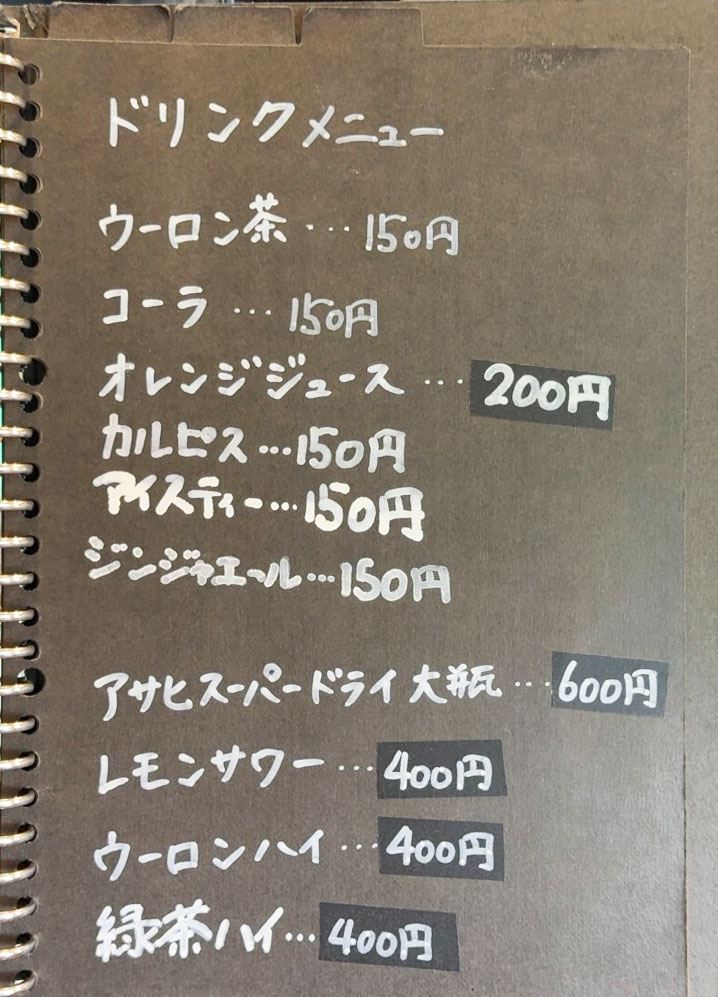 ドリンクメニュー
ウーロン茶…150円
コーラ…150円
オレンジジュース…200円
カルピス…150円
アイスティー…150円
ジンジャエール…150円
アサヒスーパードライ大瓶…600円
レモンサワー…400円
ウーロンハイ…400円
緑茶ハイ…400円